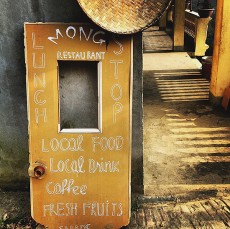 MONG
RESTAURANT
LUNCH
STOP
LOCAL FOOD
LOCAL Drink
Coffee
FRESH FRUITS